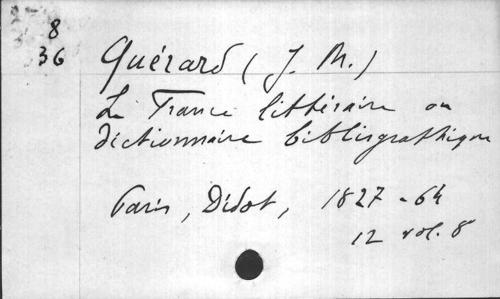 8
36
Quérard (J. M.)
La France littéraire ou
dictionnaire bibliographique
Paris, Didot, 1827-64
12 vol. 8°